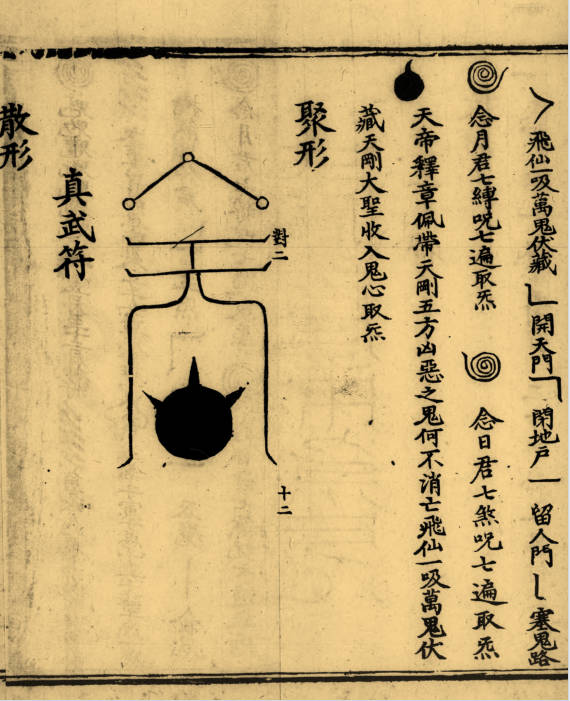 飛仙一吸萬鬼伏藏 開天門 閉地戶 留人門 塞鬼路
念月君七縛呪七遍取炁 念日君七煞呪七遍取炁
天帝釋章佩帶天剛五方凶惡之鬼何不消亡飛仙一吸萬鬼伏
藏天剛大聖收入鬼心取炁
聚形
對二
十二
真武符
散形